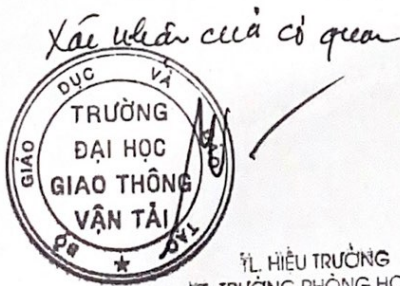 Xác nhận của cơ quan
BỘ GIÁO DỤC VÀ ĐÀO TẠO
TRƯỜNG
ĐẠI HỌC
GIAO THÔNG
VẬN TẢI
TL. HIỆU TRƯỞNG
TRƯỞNG PHÒNG